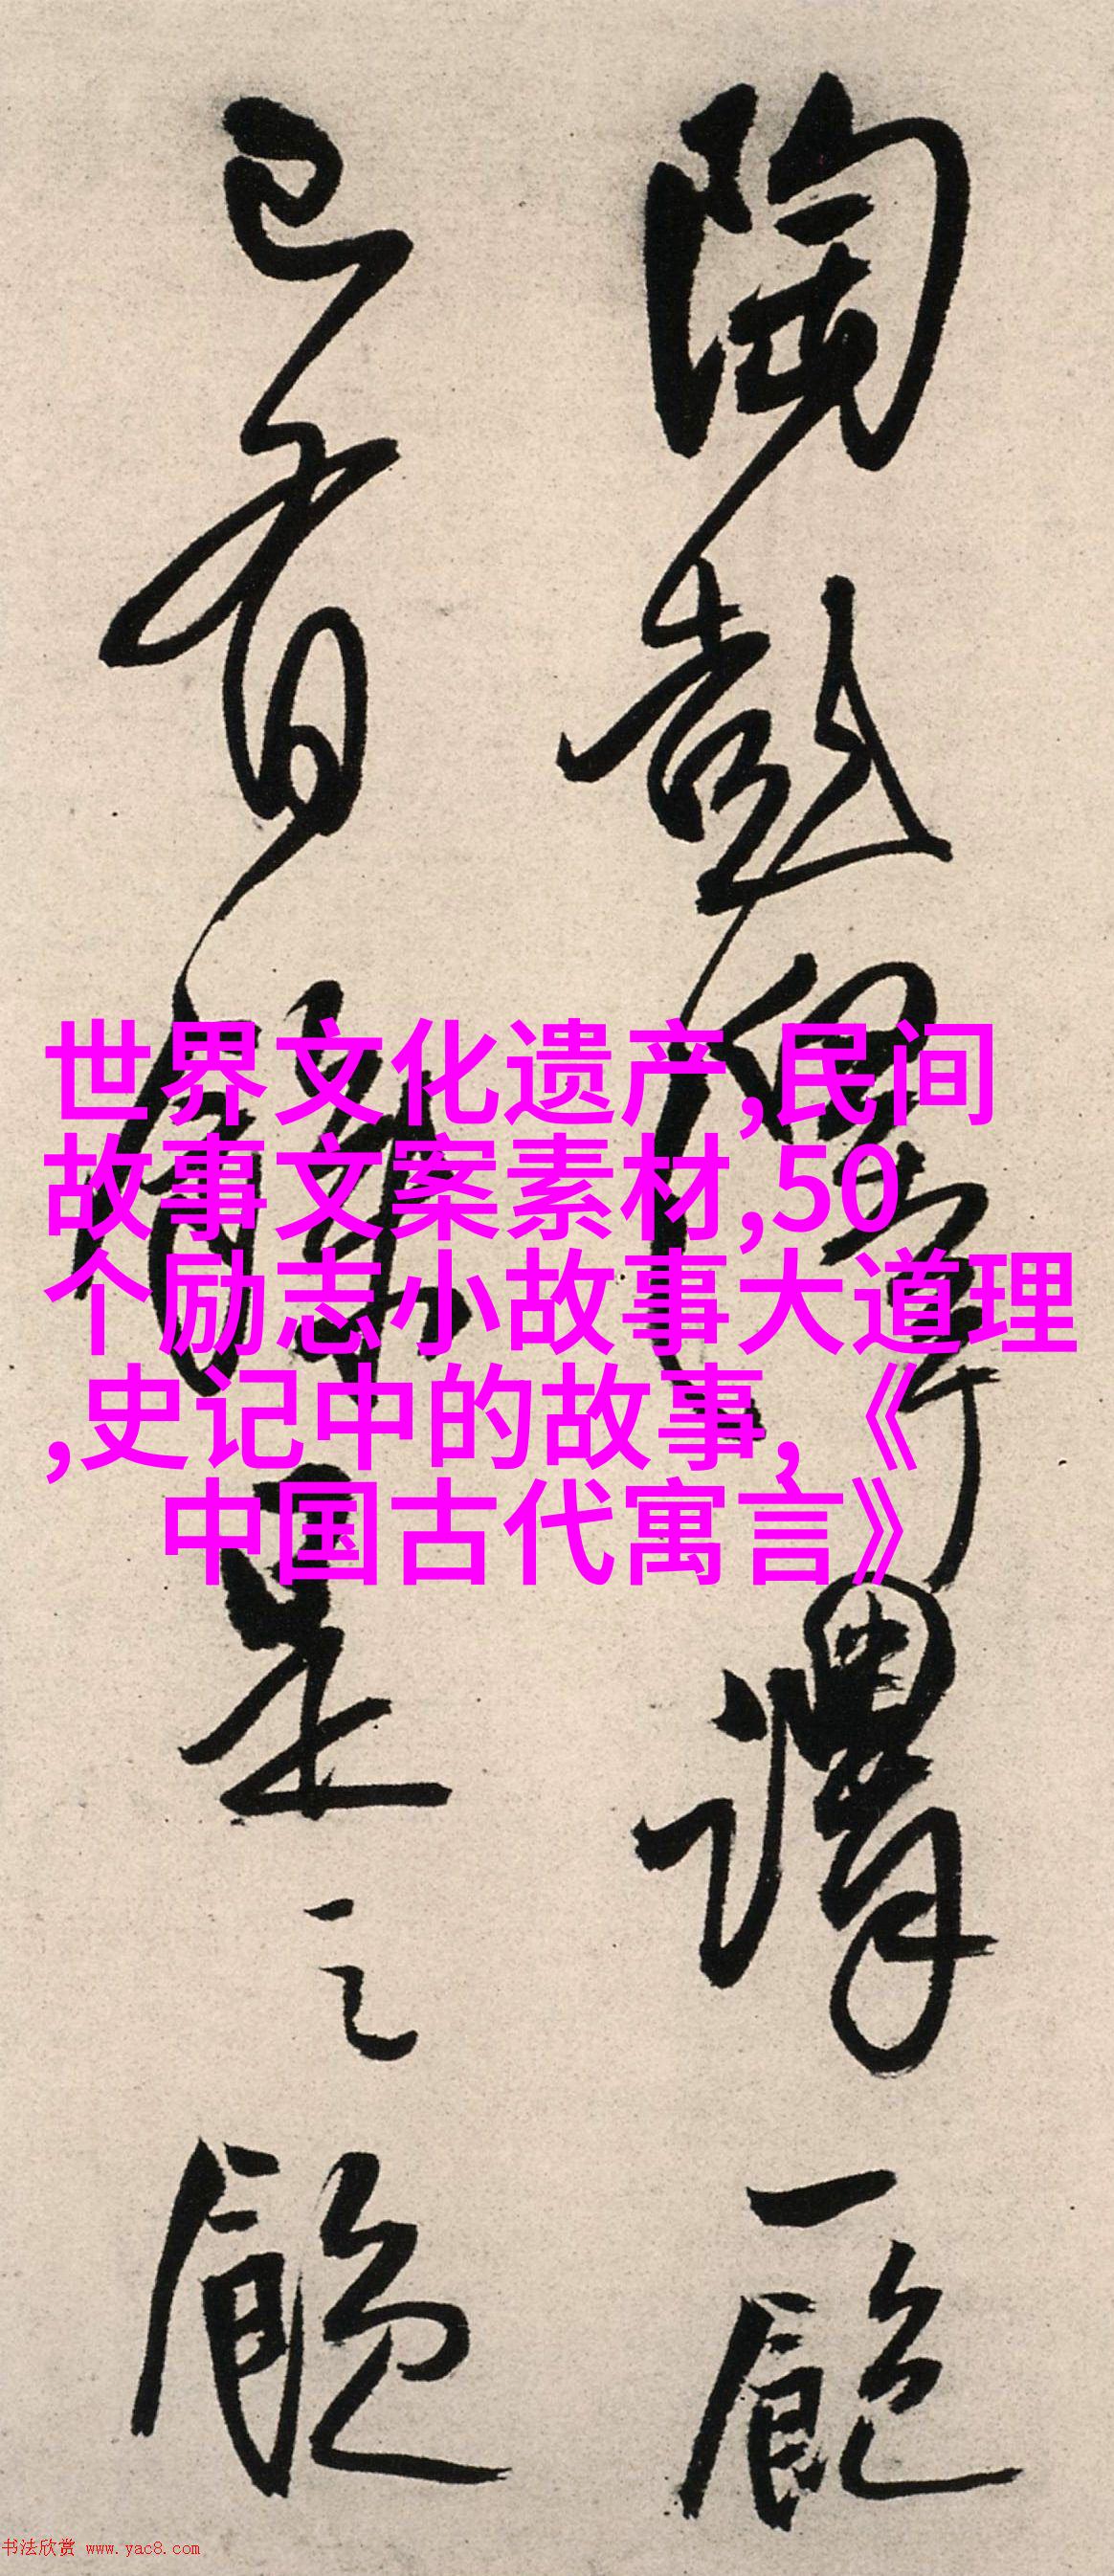 陶彭澤謂一
已有是之
世界文化遗产,民间
故事文案素材,50
个励志小故事大道理
,史记中的故事,《
中国古代寓言》
书法欣赏 www.yac8.com